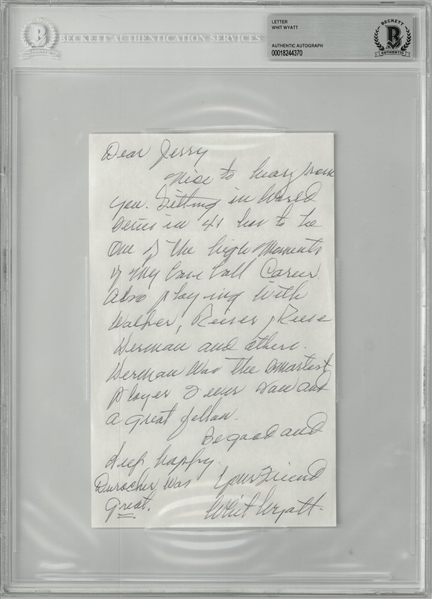 BECKETT AUTHENTICATION SERVICES
LETTER
WHIT WYATT
AUTHENTIC AUTOGRAPH
00018244370
BECKETT
AUTHENTIC
Dear Jerry
Nice to hear from
you. Pitching in World
Series in 41 has to be
one of the high moments
of my baseball Career
Also playing with
Walker, Reiser, Reese
Herman and others.
Herman was the smartest
player I ever saw and
a great fellow.
Be good and
Keep happy.
Durocher was
great.
Your Friend
Whit Wyatt